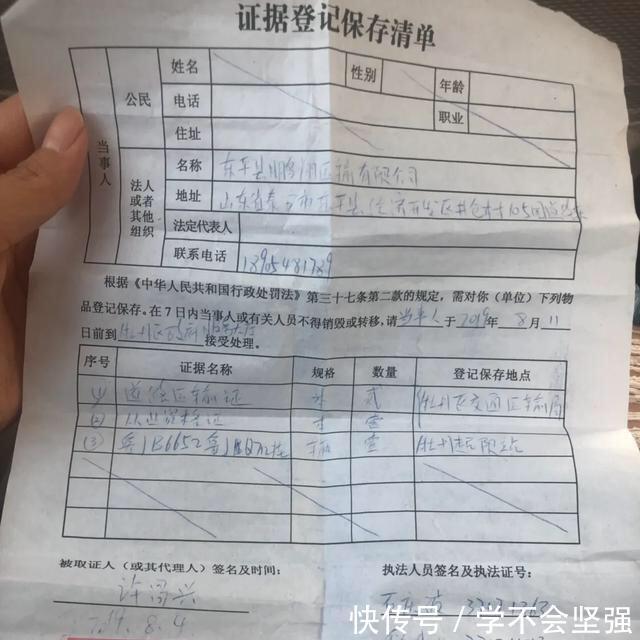 证据登记保存清单
当事人
公民
姓名
性别
年龄
电话
职业
住址
法人或者其他组织
名称 东平县 运输有限公司
地址 山东省泰 市东平县经济开发区
法定代表人
联系电话
根据《中华人民共和国行政处罚法》第三十七条第二款的规定,需对你(单位)下列物
品登记保存。在7日内当事人或有关人员不得销毁或转移,请 当事人 于 2019 年 8 月 11
日前到 接受处理。
序号 证据名称 规格 数量 登记保存地点
(1) 道路运输证 本 贰 区交通运输局
(2) 从业资格证 本 壹
(3) 鲁JB6652鲁J 挂 辆 壹 超限站
被取证人(或其代理人)签名及时间:
执法人员签名及执法证号:
许 兴
2019.8.4
快传号/学不会坚强